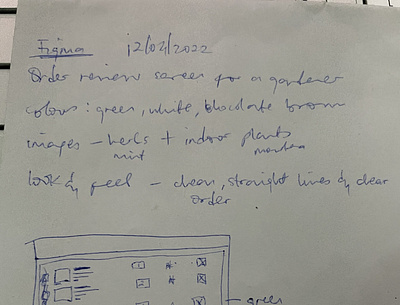 Figma 12/02/2022
Order review screen for a gardener
colours: green, white, chocolate brown
images - herbs + indoor plants
mint monstera
look & feel - clean, straight lines & clear
order
green